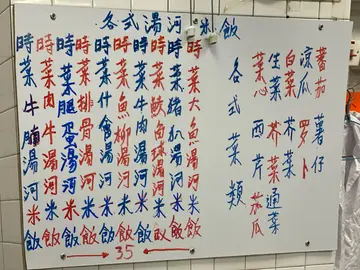 各式湯河米飯
蕃茄 薯仔
涼瓜 罗卜
白菜 芥菜
生菜 芥菜 通菜
菜心 西芹 茄瓜
各式菜類
時菜大魚湯河米飯
時菜豬扒湯河米飯
時菜球湯河米飯
時菜牛肉湯河米飯
時菜魚柳湯河米飯
時菜什會湯河米飯
時菜排骨湯河米飯
時菜腿蛋湯河米飯
時菜肉湯河米飯
時菜牛腩湯河米飯
35